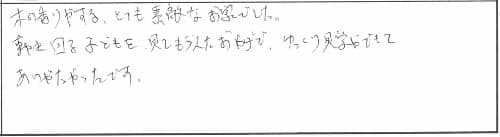 木の香りがする、とても素敵なお家でした。
動き回る子どもを見てもらえたおかげで、ゆっくり見学ができて
ありがたかったです。